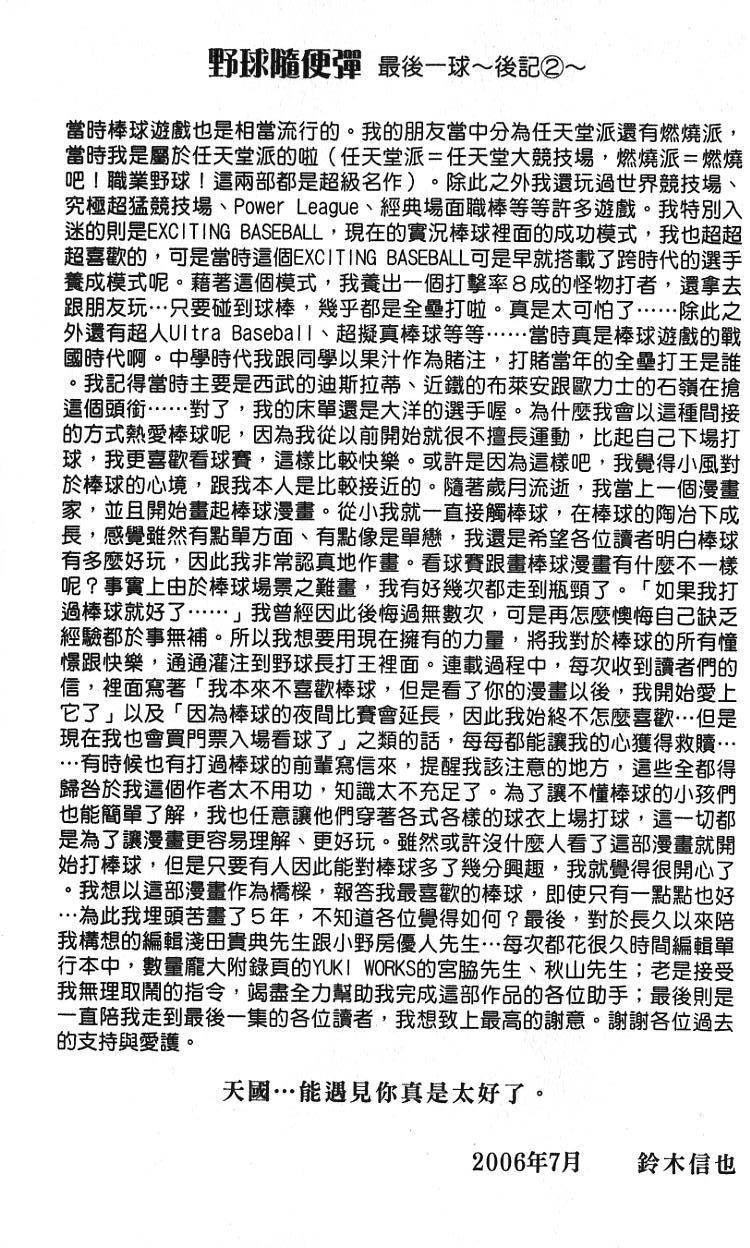 野球隨便彈 最後一球～後記②～
當時棒球遊戲也是相當流行的。我的朋友當中分為任天堂派還有燃燒派，
當時我是屬於任天堂派的啦（任天堂派＝任天堂大競技場，燃燒派＝燃燒
吧！職業野球！這兩部都是超級名作）。除此之外我還玩過世界競技場、
究極超猛競技場、Power League、經典場面職棒等等許多遊戲。我特別入
迷的則是EXCITING BASEBALL，現在的實況棒球裡面的成功模式，我也超超
超喜歡的，可是當時這個EXCITING BASEBALL可是早就搭載了跨時代的選手
養成模式呢。藉著這個模式，我養出一個打擊率８成的怪物打者，還拿去
跟朋友玩…只要碰到球棒，幾乎都是全壘打啦。真是太可怕了……除此之
外還有超人Ultra Baseball、超擬真棒球等等……當時真是棒球遊戲的戰
國時代啊。中學時代我跟同學以果汁作為賭注，打賭當年的全壘打王是誰
。我記得當時主要是西武的迪斯拉蒂、近鐵的布萊安跟歐力士的石嶺在搶
這個頭銜……對了，我的床單還是大洋的選手喔。為什麼我會以這種間接
的方式熱愛棒球呢，因為我從以前開始就很不擅長運動，比起自己下場打
球，我更喜歡看球賽，這樣比較快樂。或許是因為這樣吧，我覺得小風對
於棒球的心境，跟我本人是比較接近的。隨著歲月流逝，我當上一個漫畫
家，並且開始畫起棒球漫畫。從小我就一直接觸棒球，在棒球的陶冶下成
長，感覺雖然有點單方面、有點像是單戀，我還是希望各位讀者明白棒球
有多麼好玩，因此我非常認真地作畫。看球賽跟畫棒球漫畫有什麼不一樣
呢？事實上由於棒球場景之難畫，我有好幾次都走到瓶頸了。「如果我打
過棒球就好了……」我曾經因此後悔過無數次，可是再怎麼懊悔自己缺乏
經驗都於事無補。所以我想要用現在擁有的力量，將我對於棒球的所有憧
憬跟快樂，通通灌注到野球長打王裡面。連載過程中，每次收到讀者們的
信，裡面寫著「我本來不喜歡棒球，但是看了你的漫畫以後，我開始愛上
它了」以及「因為棒球的夜間比賽會延長，因此我始終不怎麼喜歡…但是
現在我也會買門票入場看球了」之類的話，每每都能讓我的心獲得救贖…
…有時候也有打過棒球的前輩寫信來，提醒我該注意的地方，這些全都得
歸咎於我這個作者太不用功，知識太不充足了。為了讓不懂棒球的小孩們
也能簡單了解，我也任意讓他們穿著各式各樣的球衣上場打球，這一切都
是為了讓漫畫更容易理解、更好玩。雖然或許沒什麼人看了這部漫畫就開
始打棒球，但是只要有人因此能對棒球多了幾分興趣，我就覺得很開心了
。我想以這部漫畫作為橋樑，報答我最喜歡的棒球，即使只有一點點也好
…為此我埋頭苦畫了５年，不知道各位覺得如何？最後，對於長久以來陪
我構想的編輯淺田貴典先生跟小野房優人先生…每次都花很久時間編輯單
行本中，數量龐大附錄頁的YUKI WORKS的宮脇先生、秋山先生；老是接受
我無理取鬧的指令，竭盡全力幫助我完成這部作品的各位助手；最後則是
一直陪我走到最後一集的各位讀者，我想致上最高的謝意。謝謝各位過去
的支持與愛護。
天國…能遇見你真是太好了。
2006年7月 鈴木信也